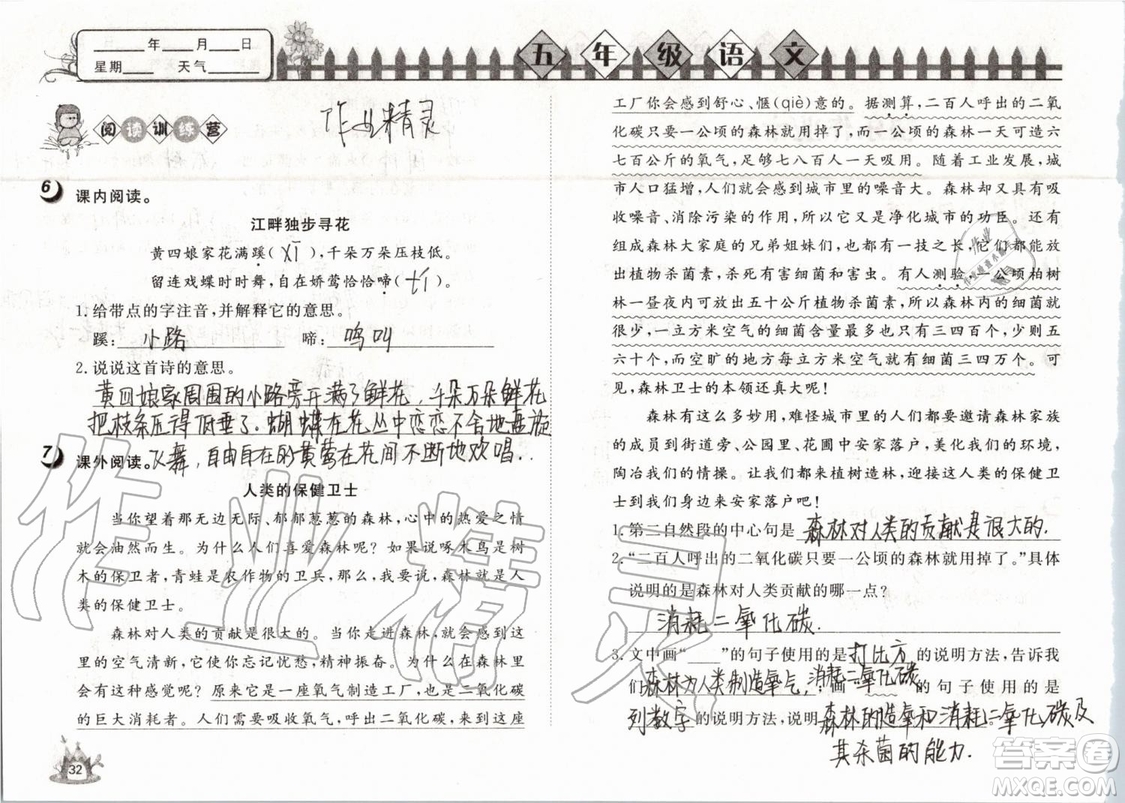 ____年____月____日
星期____ 天气____
五年级语文
阅读训练营
作业精灵
6 课内阅读。
江畔独步寻花
黄四娘家花满蹊（xī），千朵万朵压枝低。
留连戏蝶时时舞，自在娇莺恰恰啼（tí）。
1.给带点的字注音，并解释它的意思。
蹊：小路 啼：鸣叫
2.说说这首诗的意思。
黄四娘家周围的小路旁开满了鲜花，千朵万朵鲜花
把枝条压得低垂了。蝴蝶在花丛中恋恋不舍地盘旋
7 课外阅读。飞舞，自由自在的黄莺在花间不断地欢唱。
人类的保健卫士
当你望着那无边无际、郁郁葱葱的森林，心中的热爱之情
就会油然而生。为什么人们喜爱森林呢？如果说啄木鸟是树
木的保卫者，青蛙是农作物的卫兵，那么我要说，森林就是人类
的保健卫士。
森林对人类的贡献是很大的。当你走进森林，你就会感到这
里的空气清新，它使你忘记忧愁，精神振奋。为什么在森林里会
有这种感觉呢？原来它是一座氧气制造工厂，也是二氧化碳
的巨大消耗者。人们需要吸收氧气，呼出二氧化碳，来到这座
32
工厂你会感到舒心、惬（qiè）意的。据测算，二百人呼出的二氧
化碳只要一公顷的森林就用掉了。而一公顷的森林一天可造六
七百公斤的氧气，足够七八百人一天吸用。随着工业发展，城
市人口猛增，人们时时感到城市里的噪音大。森林不但有
吸收噪音、消除污染的作用，所以它又是净化城市的功臣。还有
组成森林大家庭的兄弟姐妹们，也为人类健康作贡献，它们有
植物杀菌素，杀死有害的细菌和害虫。有人测验，一公顷柏树
林一昼夜内可放出五十公斤植物杀菌素，所以森林内的细菌就
很少，一立方米空气的细菌含量最多也只有三四百个，只有五
六十个，而空旷的地方每立方米空气就有细菌三四万个。可
见，森林卫士的本领还真大呢！
森林有这么多妙用，难怪城市里的人们都要邀请森林家族
的成员到街道旁、公园里、花圃中安家落户，美化我们的环境，
陶冶我们的情操。让我们都来植树造林，迎接这人类的保健卫
士到我们身边来安家落户吧！
1.第二自然段的中心句是 森林对人类的贡献是很大的.
2.“二百人呼出的二氧化碳只要一公顷的森林就用掉了。”具体
说明的是森林对人类贡献的哪一点？
消耗二氧化碳.
3.文中画“___”的句子使用的是 打比方 的说明方法，告诉我
们 森林为人类制造氧气，消耗二氧化碳。画“ ”的句子使用的是
列数字 的说明方法，说明 森林的造氧和消耗二氧化碳及
其杀菌的能力.
作业精灵
答案圈
MXQE.COM